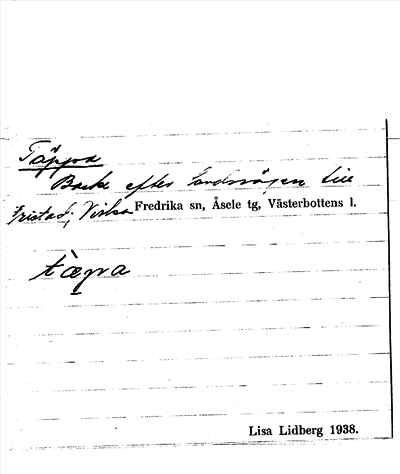 Täppa
Backe efter landsvägen till
Fristad, Viska Fredrika sn, Åsele tg, Västerbottens l.
Lisa Lidberg 1938.